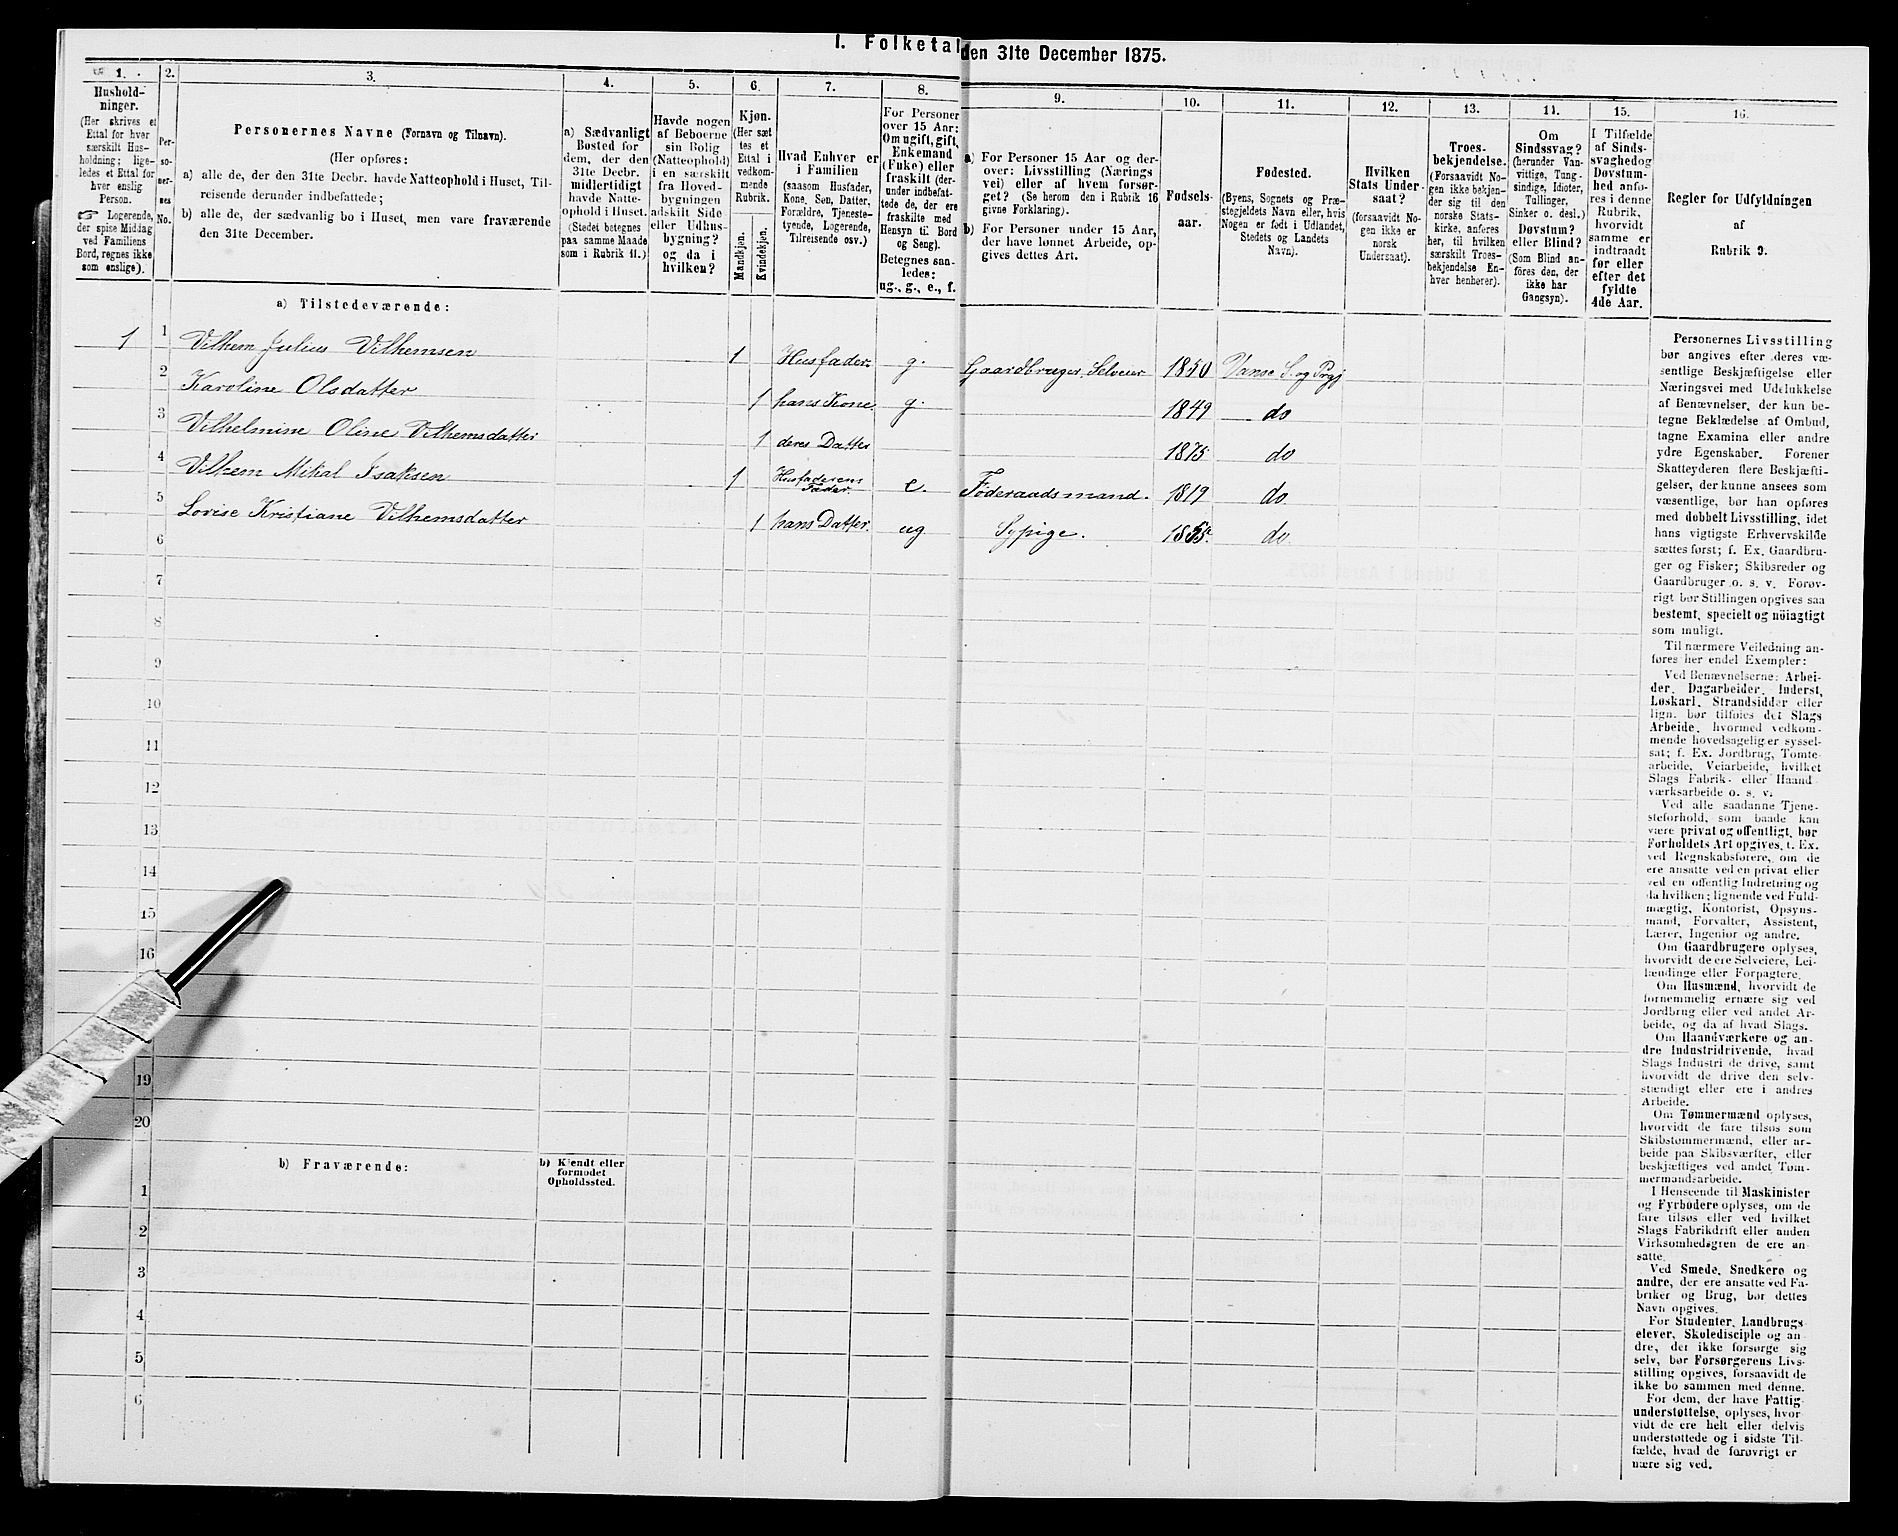 I. Folketal den 31te December 1875.
1.
Hushold-
ninger.
(Her skrives et
Ettal for hver
særskilt Hus-
holdning; lige-
ledes et Ettal for
hver enslig
Person.
☞ Logerende,
der spise Middag
ved Familiens
Bord, regnes ikke
som enslige).
2.
Per-
so-
ner-
nes
No.
3.
Personernes Navne (Fornavn og Tilnavn).
(Her opføres:
a) alle de, der den 31te Decbr. havde Natteophold i Huset, Til-
reisende derunder indbefattede;
b) alle de, der sædvanlig bo i Huset, men vare fraværende
den 31te December.
4.
a) Sædvanligt
Bosted for
dem, der den
31te Decbr.
midlertidigt
havde Natte-
ophold i Huset.
(Stedet betegnes
paa samme Maade
som i Rubrik 11.)
5.
Havde nogen
af Beboerne
sin Bolig
(Natteophold)
i en særskilt
fra Hoved-
bygningen
adskilt Side-
eller Udhus-
bygning?
og da i
hvilken?
6.
Kjøn.
(Her sæt-
tes et
Ettal i
vedkom-
mende
Rubrik.
Mandkjøn.
Kvindekjøn.
7.
Hvad Enhver er
i Familien
(saasom Husfader,
Kone, Søn, Datter,
Forældre, Tjeneste-
tyende, Logerende,
Tilreisende osv.)
8.
For Personer
over 15 Aar:
Om ugift, gift,
Enkemand
(Enke) eller
fraskilt (der-
under indbefat-
tede de, der ere
fraskilte med
Hensyn til Bord
og Seng).
Betegnes saa-
ledes:
ug., g., e., f.
9.
a) For Personer 15 Aar og der-
over: Livsstilling (Nærings-
vei) eller af hvem forsør-
get? (Se herom den i Rubrik 16
givne Forklaring).
b) For Personer under 15 Aar,
der have lønnet Arbeide, op-
gives dettes Art.
10.
Fødsels-
aar.
11.
Fødested.
(Byens, Sognets og Præ-
stegjeldets Navn eller, hvis
Nogen er født i Udlandet,
Stedets og Landets
Navn).
12.
Hvilken
Stats Under-
saat?
(forsaavidt No-
gen ikke er
norsk
Undersaat).
13.
Troes-
bekjendelse.
(Forsaavidt No-
gen ikke bekjen-
der sig til den
norske Stats-
kirke, anføres
her, til hvilken
særskilt Troes-
bekjendelse En-
hver henhører).
14.
Om
Sindssvag?
(herunder Van-
vittige, Tung-
sindige, Idioter,
Tullinger,
Sinker o. desl.)
Døvstum?
eller Blind?
(Som Blind an-
føres den, der
ikke har
Gangsyn).
15.
I Tilfælde
af Sinds-
svaghed og
Døvstum-
hed anfø-
res i denne
Rubrik,
hvorvidt
samme er
indtraadt
før eller
efter det
fyldte
4de Aar.
16.
Regler for Udfyldningen
af
Rubrik 9.
a) Tilstedeværende:
1 1 Vilhem Julius Vilhemsen 1 Husfader. g. Gaardbruger, Selveier 1850 Vanse S. og Prgj
2 Karoline Olsdatter 1 hans Kone. g. 1849 do
3 Vilhelmine Oline Vilhemsdatter 1 deres Datter 1875 do
4 Vilhem Mikal Isaksen 1 Husfaderens Fader. e. Føderaadsmand. 1819 do
5 Lovise Kristiane Vilhemsdatter 1 hans Datter. ug Sypige. 1855. do.
6
7
8
9
10
11
12
13
14
15
16
19
20
b) Fraværende:
b) Kjendt eller
formodet
Opholdssted.
1
2
3
4
5
6
Personernes Livsstilling
bør angives efter deres væ-
sentlige Beskjæftigelse eller
Næringsvei med Udelukkelse
af Benævnelser, der kun be-
tegne Beklædelse af Ombud,
tagne Examina eller andre
ydre Egenskaber. Forener
Skatteyderen flere Beskjæfti-
gelser, der kunne ansees som
væsentlige, bør han opføres
med dobbelt Livsstilling, idet
hans vigtigste Erhvervskilde
sættes først; f. Ex. Gaardbru-
ger og Fisker; Skibsreder og
Gaardbruger o. s. v. Forøv-
rigt bør Stillingen opgives saa
bestemt, specielt og nøiagtigt
som muligt.
Til nærmere Veiledning an-
føres her endel Exempler:
Ved Benævnelserne: Arbei-
der, Dagarbeider, Inderst,
Løskarl, Strandsidder eller
lign. bør tilføies det Slags
Arbeide, hvormed vedkom-
mende hovedsagelig er syssel-
sat; f. Ex. Jordbrug, Tomte-
arbeide, Veiarbeide, hvilket
Slags Fabrik- eller Haand-
værksarbeide o. s. v.
Ved alle saadanne Tjene-
steforhold, som baade kan
være privat og offentligt, bør
Forholdets Art opgives, f. Ex.
ved Regnskabsførere, om de
ere ansatte ved en privat eller
ved en offentlig Indretning og
da hvilken; lignende ved Fuld-
mægtig, Kontorist, Opsyns-
mand, Forvalter, Assistent,
Lærer, Ingeniør og andre.
Om Gaardbrugere oplyses,
hvorvidt de ere Selveiere, Lei-
lændinge eller Forpagtere.
Om Husmænd, hvorvidt de
fornemmelig ernære sig ved
Jordbrug eller ved andet Ar-
beide, og da af hvad Slags.
Om Haandværkere og an-
dre Industridrivende, hvad
Slags Industri de drive, samt
hvorvidt de drive den selv-
stændigt eller ere i andres
Arbeide.
Om Tømmermænd oplyses,
hvorvidt de fare tilsøs som
Skibstømmermænd, eller ar-
beide paa Skibsværfter, eller
beskjæftiges ved andet Tøm-
mermandsarbeide.
I Henseende til Maskinister
og Fyrbødere oplyses, om de
fare tilsøs eller ved hvilket
Slags Fabrikdrift eller anden
Virksomhedsgren de ere an-
satte.
Ved Smede, Snedkere og
andre, der ere ansatte ved Fa-
briker og Brug, bør dettes
Navn opgives.
For Studenter, Landbrugs-
elever, Skoledisciple og an-
dre, der ikke forsørge sig
selv, bør Forsørgerens Livs-
stilling opgives, forsaavidt de
ikke bo sammen med denne.
For dem, der have Fattig-
understøttelse, oplyses, hvor-
vidt de ere helt eller delvis
understøttede og i sidste Til-
fælde, hvad de forøvrigt er-
nære sig ved.